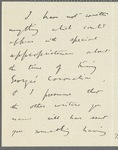 I have not written
anything which could
appear with special
appropriateness about
the time of King
George's Coronation.
I presume that
the other writers you
name will have sent
you something having